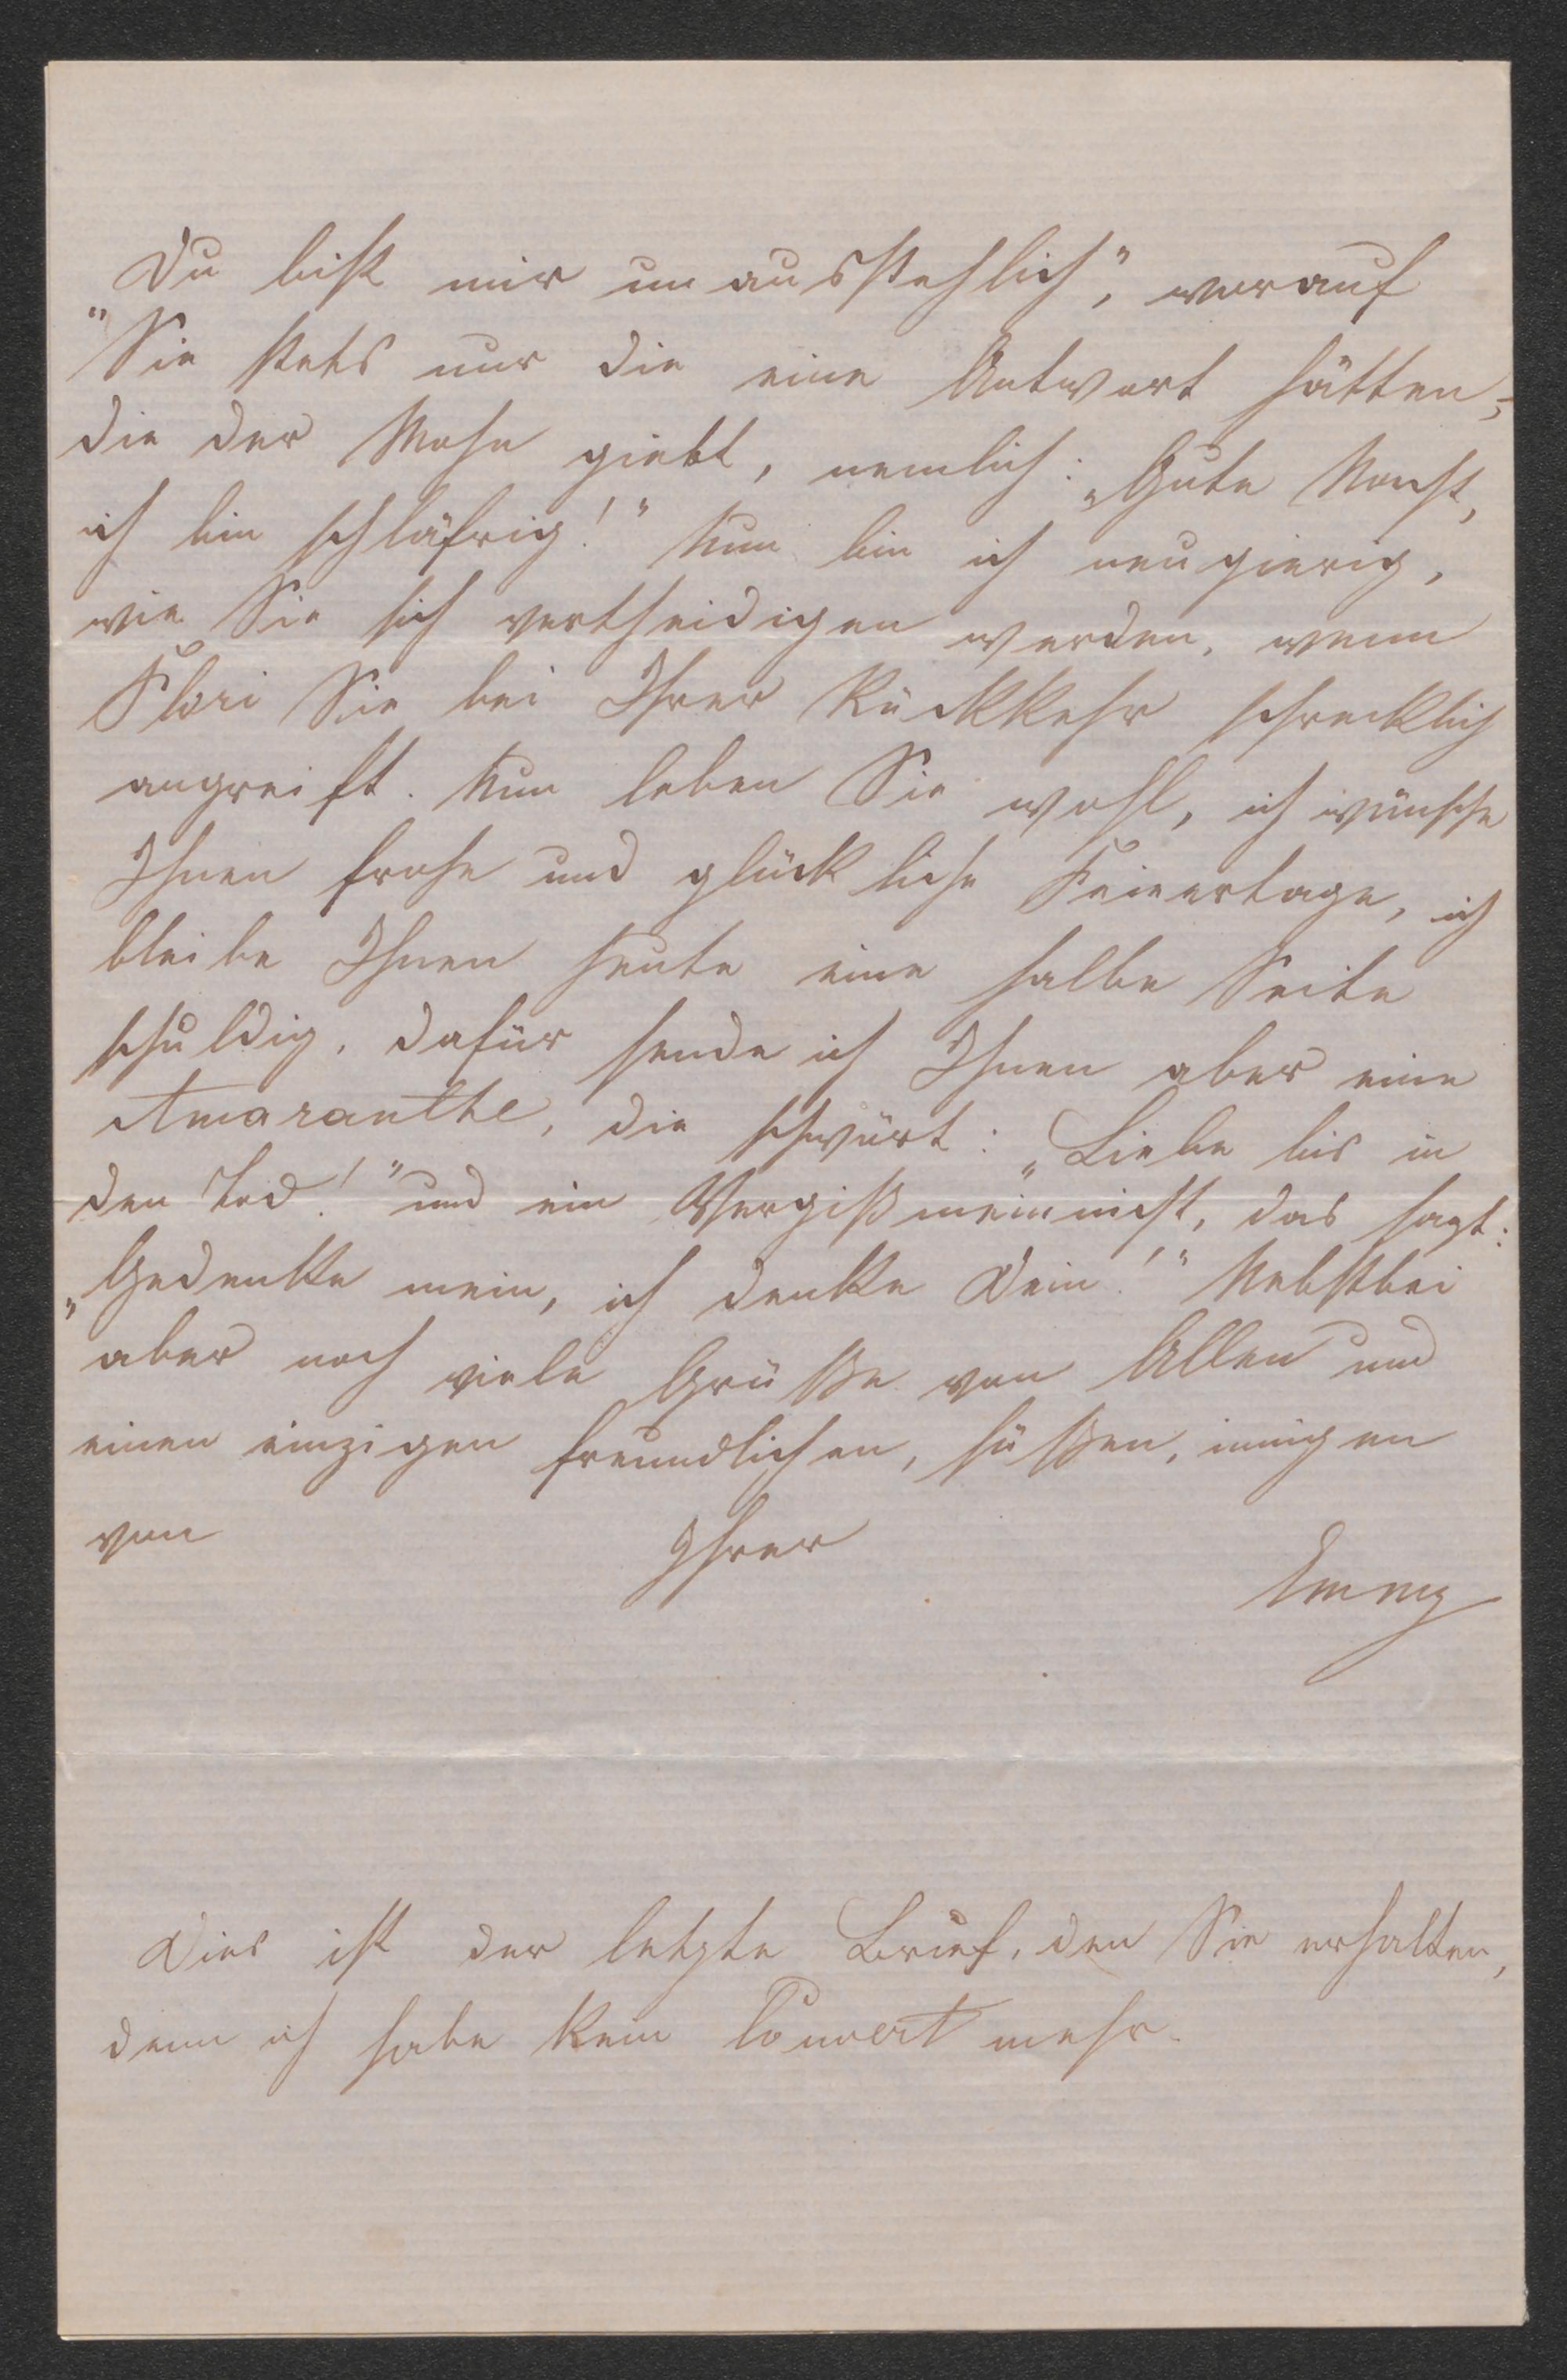 „Du bist mir unausstehlich“, worauf
Sie stets nur die eine Antwort hätten,
die der Mohn giebt, nemlich: „Gute Nacht,
ich bin schläfrig!“ Nun bin ich neugierig,
wie Sie sich vertheidigen werden, wenn
Flori Sie bei Ihrer Rückkehr schrecklich
angreift. Nun leben Sie wohl, ich wünsche
Ihnen frohe und glückliche Feiertage, ich
bleibe Ihnen heute eine halbe Seite
schuldig, dafür sende ich Ihnen aber eine
Amaranthe, die schwört: „Liebe bis in
den Tod!“ und ein Vergißmeinnicht, das sagt:
„Gedenke mein, ich denke Dein!“ Nebstbei
aber noch viele Grüße von Allen und
einen einzigen freundlichen, süßen, innigen
von Ihrer
Emmy
Dies ist der letzte Brief, den Sie erhalten,
denn ich habe kein Couvert mehr.